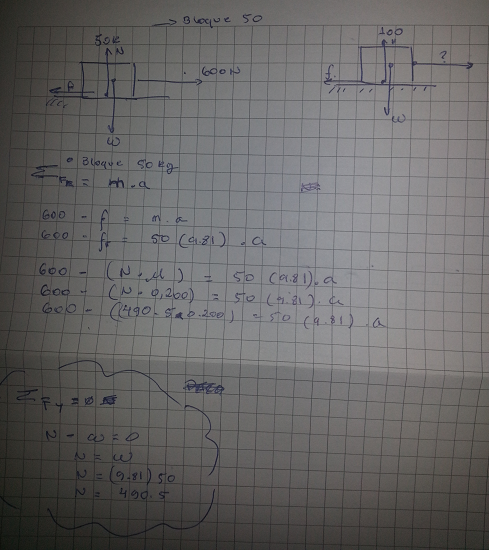 → Bloque 50
50K
N
600N
f
W
100
N
?
f
W
• Bloque 50 kg
Σ Fx = m.a
600 - f = m.a
600 - fr = 50 (9.81) . a
600 - (N . μ) = 50 (9.81) . a
600 - (N . 0,200) = 50 (9.81) . a
600 - (490.5 x 0.200) = 50 (9.81) . a
Σ Fy = 0
N - W = 0
N = W
N = (9.81) 50
N = 490.5